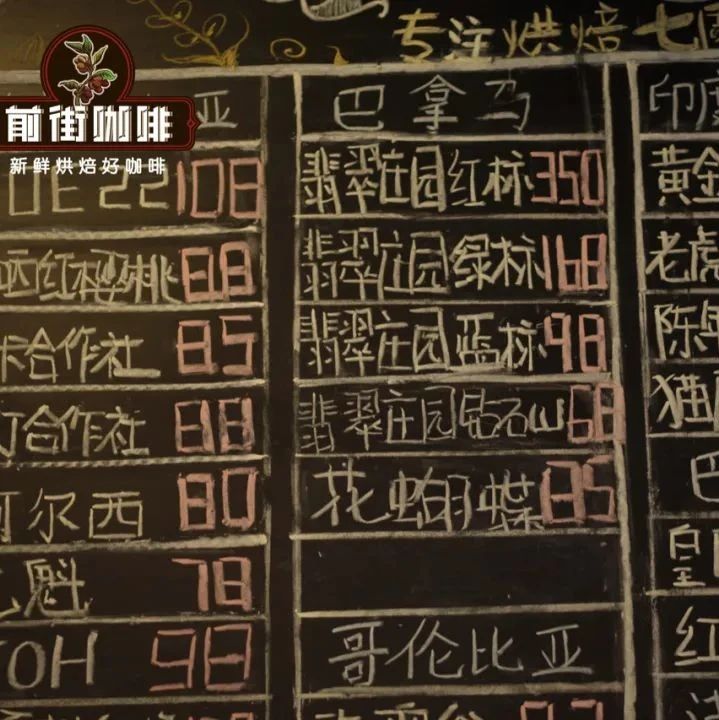 专注烘焙七
前街咖啡
新鲜烘焙好咖啡
亚
22 108
红樱桃 88
合作社 85
合作社 88
阿尔西 80
魁 78
98
巴拿马
翡翠庄园红标 350
翡翠庄园绿标 168
翡翠庄园蓝标 98
翡翠庄园钻石山 68
花蝴蝶 85
哥伦比亚
印度
黄金
老虎
陈年
猫
巴
皇
红